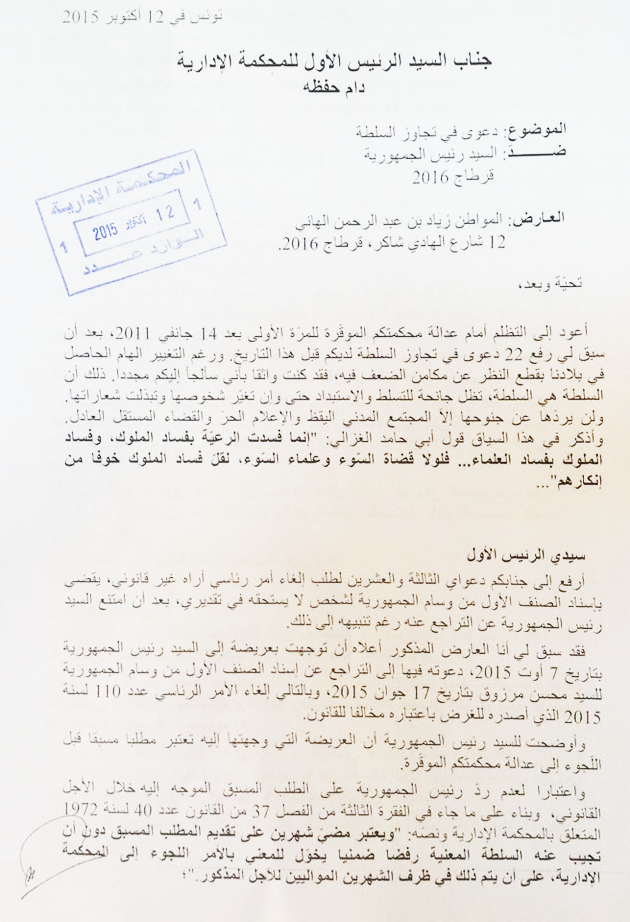 تونس في 12 أكتوبر 2015
جناب السيد الرئيس الأول للمحكمة الإدارية
دام حفظه
الموضوع: دعوى في تجاوز السلطة
ضـــــد: السيد رئيس الجمهورية
قرطاج 2016
المحكمة الإدارية
1 12 أكتوبر 2015 1
الـوارد عـدد
العارض: المواطن زياد بن عبد الرحمن الهاني
12 شارع الهادي شاكر، قرطاج 2016.
تحيّة وبعد،
أعود إلى التظلم أمام عدالة محكمتكم الموقّرة للمرّة الأولى بعد 14 جانفي 2011، بعد أن
سبق لي رفع 22 دعوى في تجاوز السلطة لديكم قبل هذا التاريخ. ورغم التغيير الهام الحاصل
في بلادنا بقطع النظر عن مكامن الضعف فيه، فقد كنت واثقا بأني سألجأ إليكم مجددا. ذلك أن
السلطة هي السلطة، تظل جانحة للتسلط والاستبداد حتى وإن تغيّر شخوصها وتبدّلت شعاراتها.
ولن يردّها عن جنوحها إلاّ المجتمع المدني اليقظ والإعلام الحرّ والقضاء المستقل العادل.
وأذكر في هذا السياق قول أبي حامد الغزالي: "إنما فسدت الرعيّة بفساد الملوك، وفساد
الملوك بفساد العلماء... فلولا قضاة السّوء وعلماء السّوء، لقلّ فساد الملوك خوفا من
إنكارهم"...
سيدي الرئيس الأول
أرفع إلى جنابكم دعواي الثالثة والعشرين لطلب إلغاء أمر رئاسي أراه غير قانوني، يقضي
بإسناد الصنف الأول من وسام الجمهورية لشخص لا يستحقه في تقديري، بعد أن امتنع السيد
رئيس الجمهورية عن التراجع عنه رغم تنبيهه إلى ذلك.
فقد سبق لي أنا العارض المذكور أعلاه أن توجهت بعريضة إلى السيد رئيس الجمهورية
بتاريخ 7 أوت 2015، دعوته فيها إلى التراجع عن إسناد الصنف الأول من وسام الجمهورية
للسيد محسن مرزوق بتاريخ 17 جوان 2015، وبالتالي إلغاء الأمر الرئاسي عدد 110 لسنة
2015 الذي أصدره للغرض باعتباره مخالفا للقانون.
وأوضحت للسيد رئيس الجمهورية أن العريضة التي وجهتها إليه تعتبر مطلبا مسبقا قبل
اللّجوء إلى عدالة محكمتكم الموقّرة.
واعتبارا لعدم ردّ رئيس الجمهورية على الطلب المسبق الموجه إليه خلال الأجل
القانوني، وبناء على ما جاء في الفقرة الثالثة من الفصل 37 من القانون عدد 40 لسنة 1972
المتعلق بالمحكمة الإدارية ونصّه: "ويعتبر مضيّ شهرين على تقديم المطلب المسبق دون أن
تجيب عنه السلطة المعنية رفضا ضمنيا يخوّل للمعني بالأمر اللجوء إلى المحكمة
الإدارية، على أن يتم ذلك في ظرف الشهرين المواليين للأجل المذكور."؛